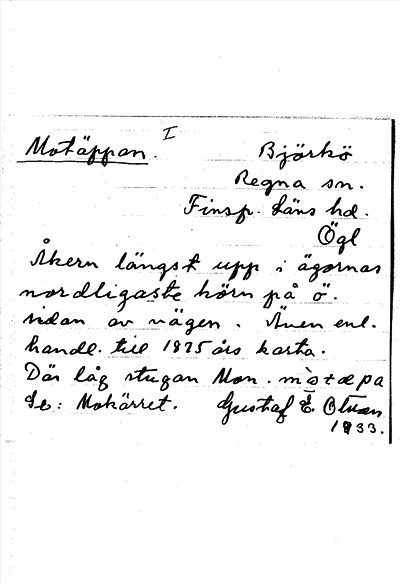 Motäppan. I Björkö
Regna sn.
Finsp. Läns hd.
Ögl
Åkern längst upp i ägornas
nordligaste hörn på ö.
sidan av vägen. Även enl.
handl. till 1875 års karta.
Där låg stugan Mon. mòtæpa
Se: Mokärret. Gustaf E.
1933.